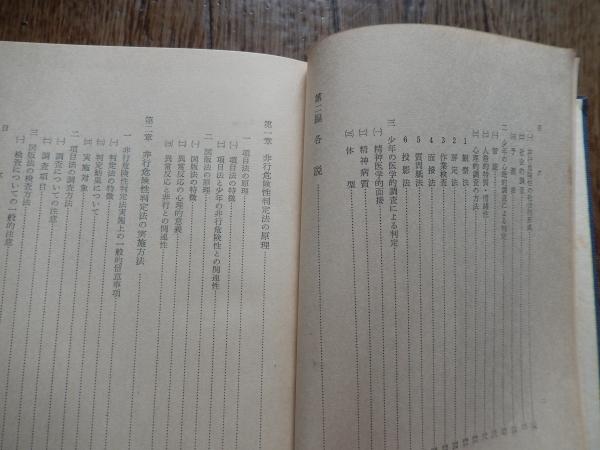 (二) 社会的調査
二 少年の心理学的調査による判定
(一) 知能
(二) 人格的特質・情緒性
(三) 心理的調査の方法
1 観察法
2 評定法
3 作業検査
4 面接法
5 質問紙法
6 投影法
三 少年の医学的調査による判定
(一) 精神医学的面接
(二) 精神病質
(三) 体型
第二編 各説
第一章 非行危険性判定法の原理
一 項目法の原理
(一) 項目法の特徴
(二) 項目法と少年の非行危険性との関連性
二 図版法の原理
(一) 図版法の特徴
(二) 異常反応の心理的意義
(三) 異常反応と非行との関連性
第二章 非行危険性判定法の実施方法
一 非行危険性判定法実施上の一般的留意事項
(一) 判定法の特徴
(二) 判定結果について
(三) 実施対象
二 項目法の調査方法
(一) 調査についての注意
(二) 調査項目
三 図版法の検査方法
(一) 検査についての一般的注意
目次